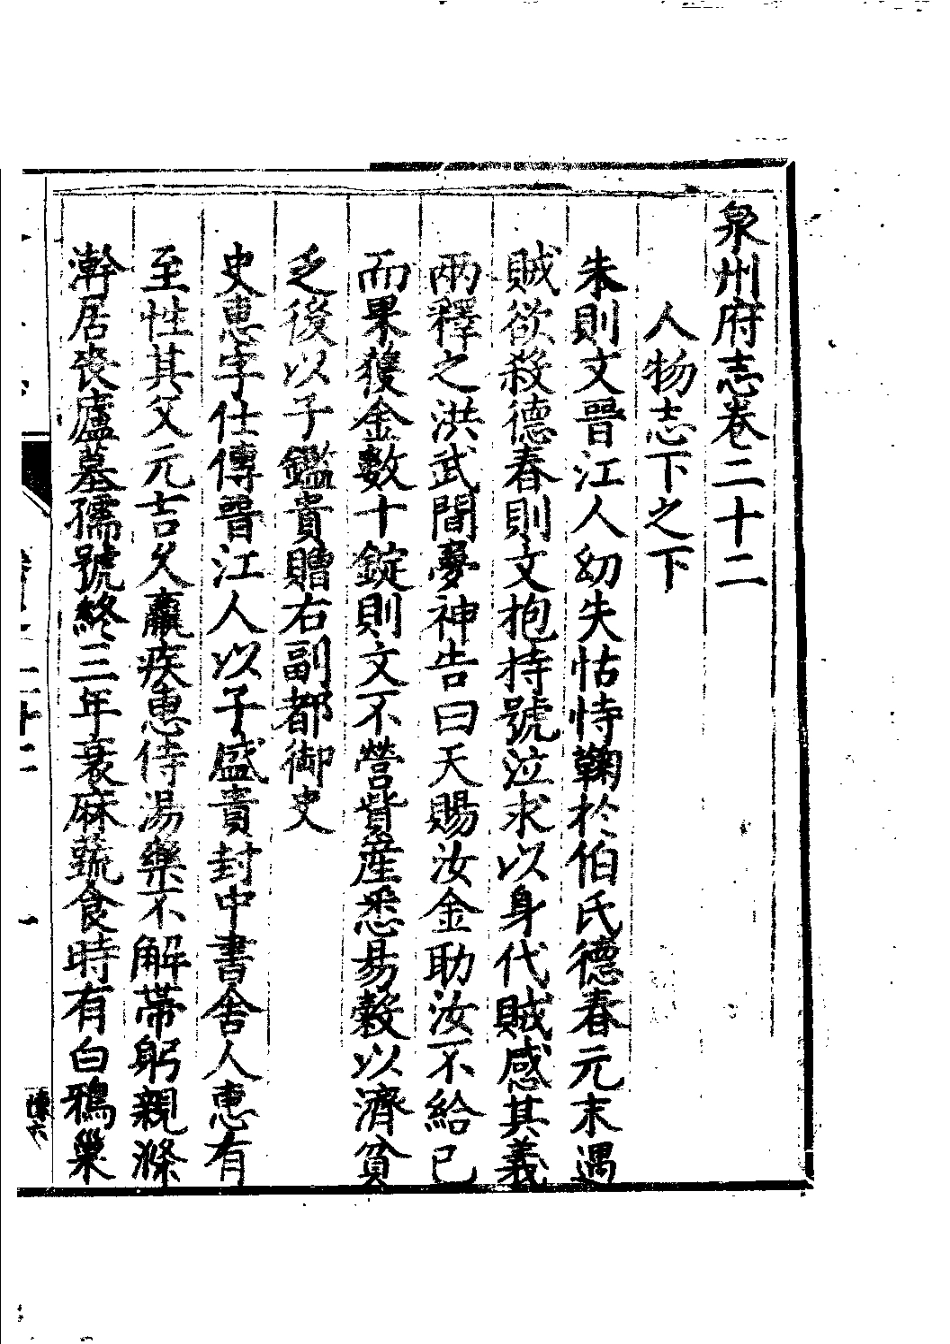 泉州府志卷二十二
人物志下之下
朱則文晉江人幼失怙恃鞠於伯氏德春元末遇
賊欲殺德春則文抱持號泣求以身代賊感其義
兩釋之洪武間夢神告曰天賜汝金助汝不給已
而果獲金數十錠則文不營貲産悉易穀以濟貧
乏後以子鑑貴贈右副都御史
史惠字仕傳晉江人以子盛貴封中書舍人惠有
至性其父元吉久羸疾惠侍湯藥不解帯躬親滌
澣居喪廬墓孺號終三年衰麻蔬食時有白鴉巢
二十二
一